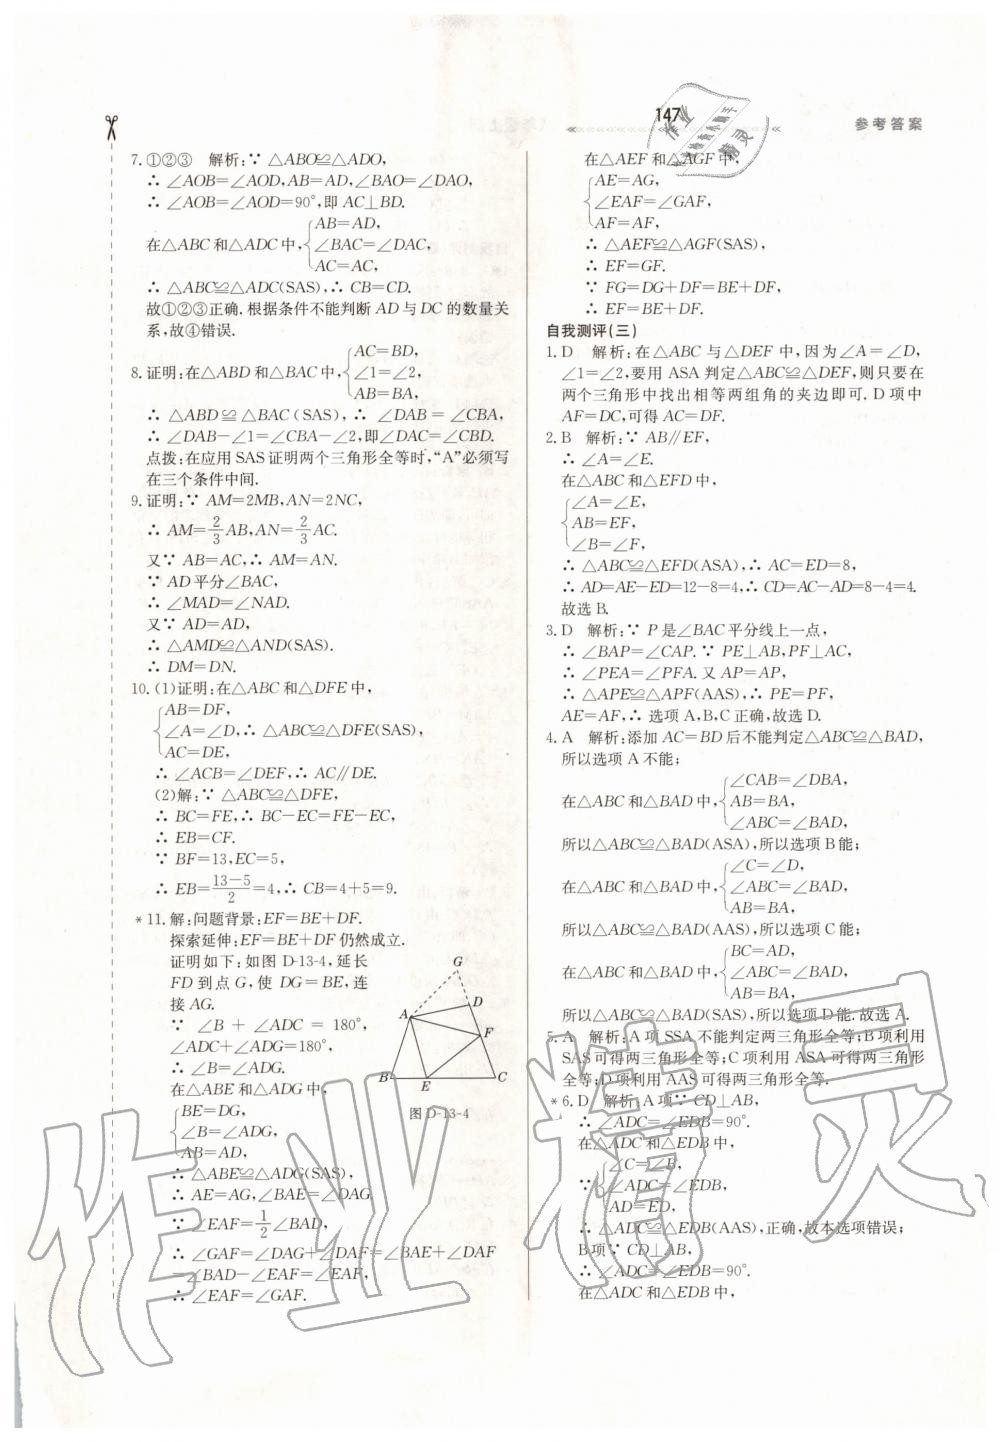 147
参考答案
7.①②③ 解析:∵ △ABO≌△ADO,
∴ ∠AOB=∠AOD,AB=AD,∠BAO=∠DAO,
∴ ∠AOB=∠AOD=90°,即 AC⊥BD.
在△ABC 和△ADC 中,{AB=AD,
∠BAC=∠DAC,
AC=AC,
∴ △ABC≌△ADC(SAS),∴ CB=CD.
故①②③正确.根据条件不能判断 AD 与 DC 的数量关
系,故④错误.
8.证明:在△ABD 和△BAC 中,{AC=BD,
∠1=∠2,
AB=BA,
∴ △ABD≌△BAC(SAS),∴ ∠DAB=∠CBA,
∴ ∠DAB-∠1=∠CBA-∠2,即∠DAC=∠CBD.
点拨:在应用 SAS 证明两个三角形全等时,“A”必须写
在三个条件中间.
9.证明:∵ AM=2MB,AN=2NC,
∴ AM=2/3 AB,AN=2/3 AC.
又∵ AB=AC,∴ AM=AN.
∵ AD 平分∠BAC,
∴ ∠MAD=∠NAD.
又∵ AD=AD,
∴ △AMD≌△AND(SAS).
∴ DM=DN.
10.(1)证明:在△ABC 和△DFE 中,
{AB=DF,
∠A=∠D,∴ △ABC≌△DFE(SAS),
AC=DE,
∴ ∠ACB=∠DEF,∴ AC∥DE.
(2)解:∵ △ABC≌△DFE,
∴ BC=FE,∴ BC-EC=FE-EC,
∴ EB=CF.
∵ BF=13,EC=5,
∴ EB=(13-5)/2=4,∴ CB=4+5=9.
*11.解:问题背景:EF=BE+DF.
探索延伸:EF=BE+DF 仍然成立.
证明如下:如图 D-13-4,延长
FD 到点 G,使 DG=BE,连
接 AG.
∵ ∠B+∠ADC=180°,
∠ADC+∠ADG=180°,
∴ ∠B=∠ADG.
在△ABE 和△ADG 中,
{BE=DG,
∠B=∠ADG,
AB=AD,
∴ △ABE≌△ADG(SAS).
∴ AE=AG,∠BAE=∠DAG.
∵ ∠EAF=1/2∠BAD,
∴ ∠GAF=∠DAG+∠DAF=∠BAE+∠DAF
=∠BAD-∠EAF=∠EAF,
∴ ∠EAF=∠GAF.
G
D
A
F
B
E
C
图 D-13-4
在△AEF 和△AGF 中,
{AE=AG,
∠EAF=∠GAF,
AF=AF,
∴ △AEF≌△AGF(SAS).
∴ EF=GF.
∵ FG=DG+DF=BE+DF,
∴ EF=BE+DF.
自我测评(三)
1.D 解析:在△ABC 与△DEF 中,因为∠A=∠D,
∠1=∠2,要用 ASA 判定△ABC≌△DEF,则只要在
两个三角形中找出相等两组角的夹边即可.D 项中
AF=DC,可得 AC=DF.
2.B 解析:∵ AB∥EF,
∴ ∠A=∠E.
在△ABC 和△EFD 中,
{∠A=∠E,
AB=EF,
∠B=∠F,
∴ △ABC≌△EFD(ASA),∴ AC=ED=8,
∴ AD=AE-ED=12-8=4,∴ CD=AC-AD=8-4=4.
故选 B.
3.D 解析:∵ P 是∠BAC 平分线上一点,
∴ ∠BAP=∠CAP.∵ PE⊥AB,PF⊥AC,
∴ ∠PEA=∠PFA.又 AP=AP,
∴ △APE≌△APF(AAS),∴ PE=PF,
AE=AF,∴ 选项 A,B,C 正确,故选 D.
4.A 解析:添加 AC=BD 后不能判定△ABC≌△BAD,
所以选项 A 不能;
在△ABC 和△BAD 中,{∠CAB=∠DBA,
AB=BA,
∠ABC=∠BAD,
所以△ABC≌△BAD(ASA),所以选项 B能;
在△ABC 和△BAD 中,{∠C=∠D,
∠ABC=∠BAD,
AB=BA,
所以△ABC≌△BAD(AAS),所以选项 C能;
在△ABC 和△BAD 中,{BC=AD,
∠ABC=∠BAD,
AB=BA,
所以△ABC≌△BAD(SAS),所以选项 D能.故选 A.
5.A 解析:A 项 SSA 不能判定两三角形全等;B 项利用
SAS 可得两三角形全等;C 项利用 ASA 可得两三角形
全等;D 项利用 AAS 可得两三角形全等.
*6.D 解析:A 项∵ CD⊥AB,
∴ ∠ADC=∠EDB=90°.
在△ADC 和△EDB 中,
∵{∠C=∠B,
∠ADC=∠EDB,
AD=ED,
∴ △ADC≌△EDB(AAS),正确,故本选项错误;
B 项∵ CD⊥AB,
∴ ∠ADC=∠EDB=90°.
在△ADC 和△EDB 中,
作业精灵